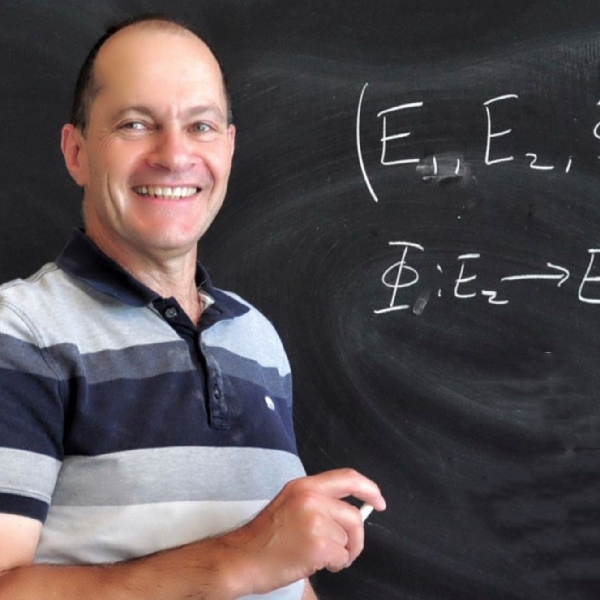 (E₁, E₂,
Φ : E₂ → E